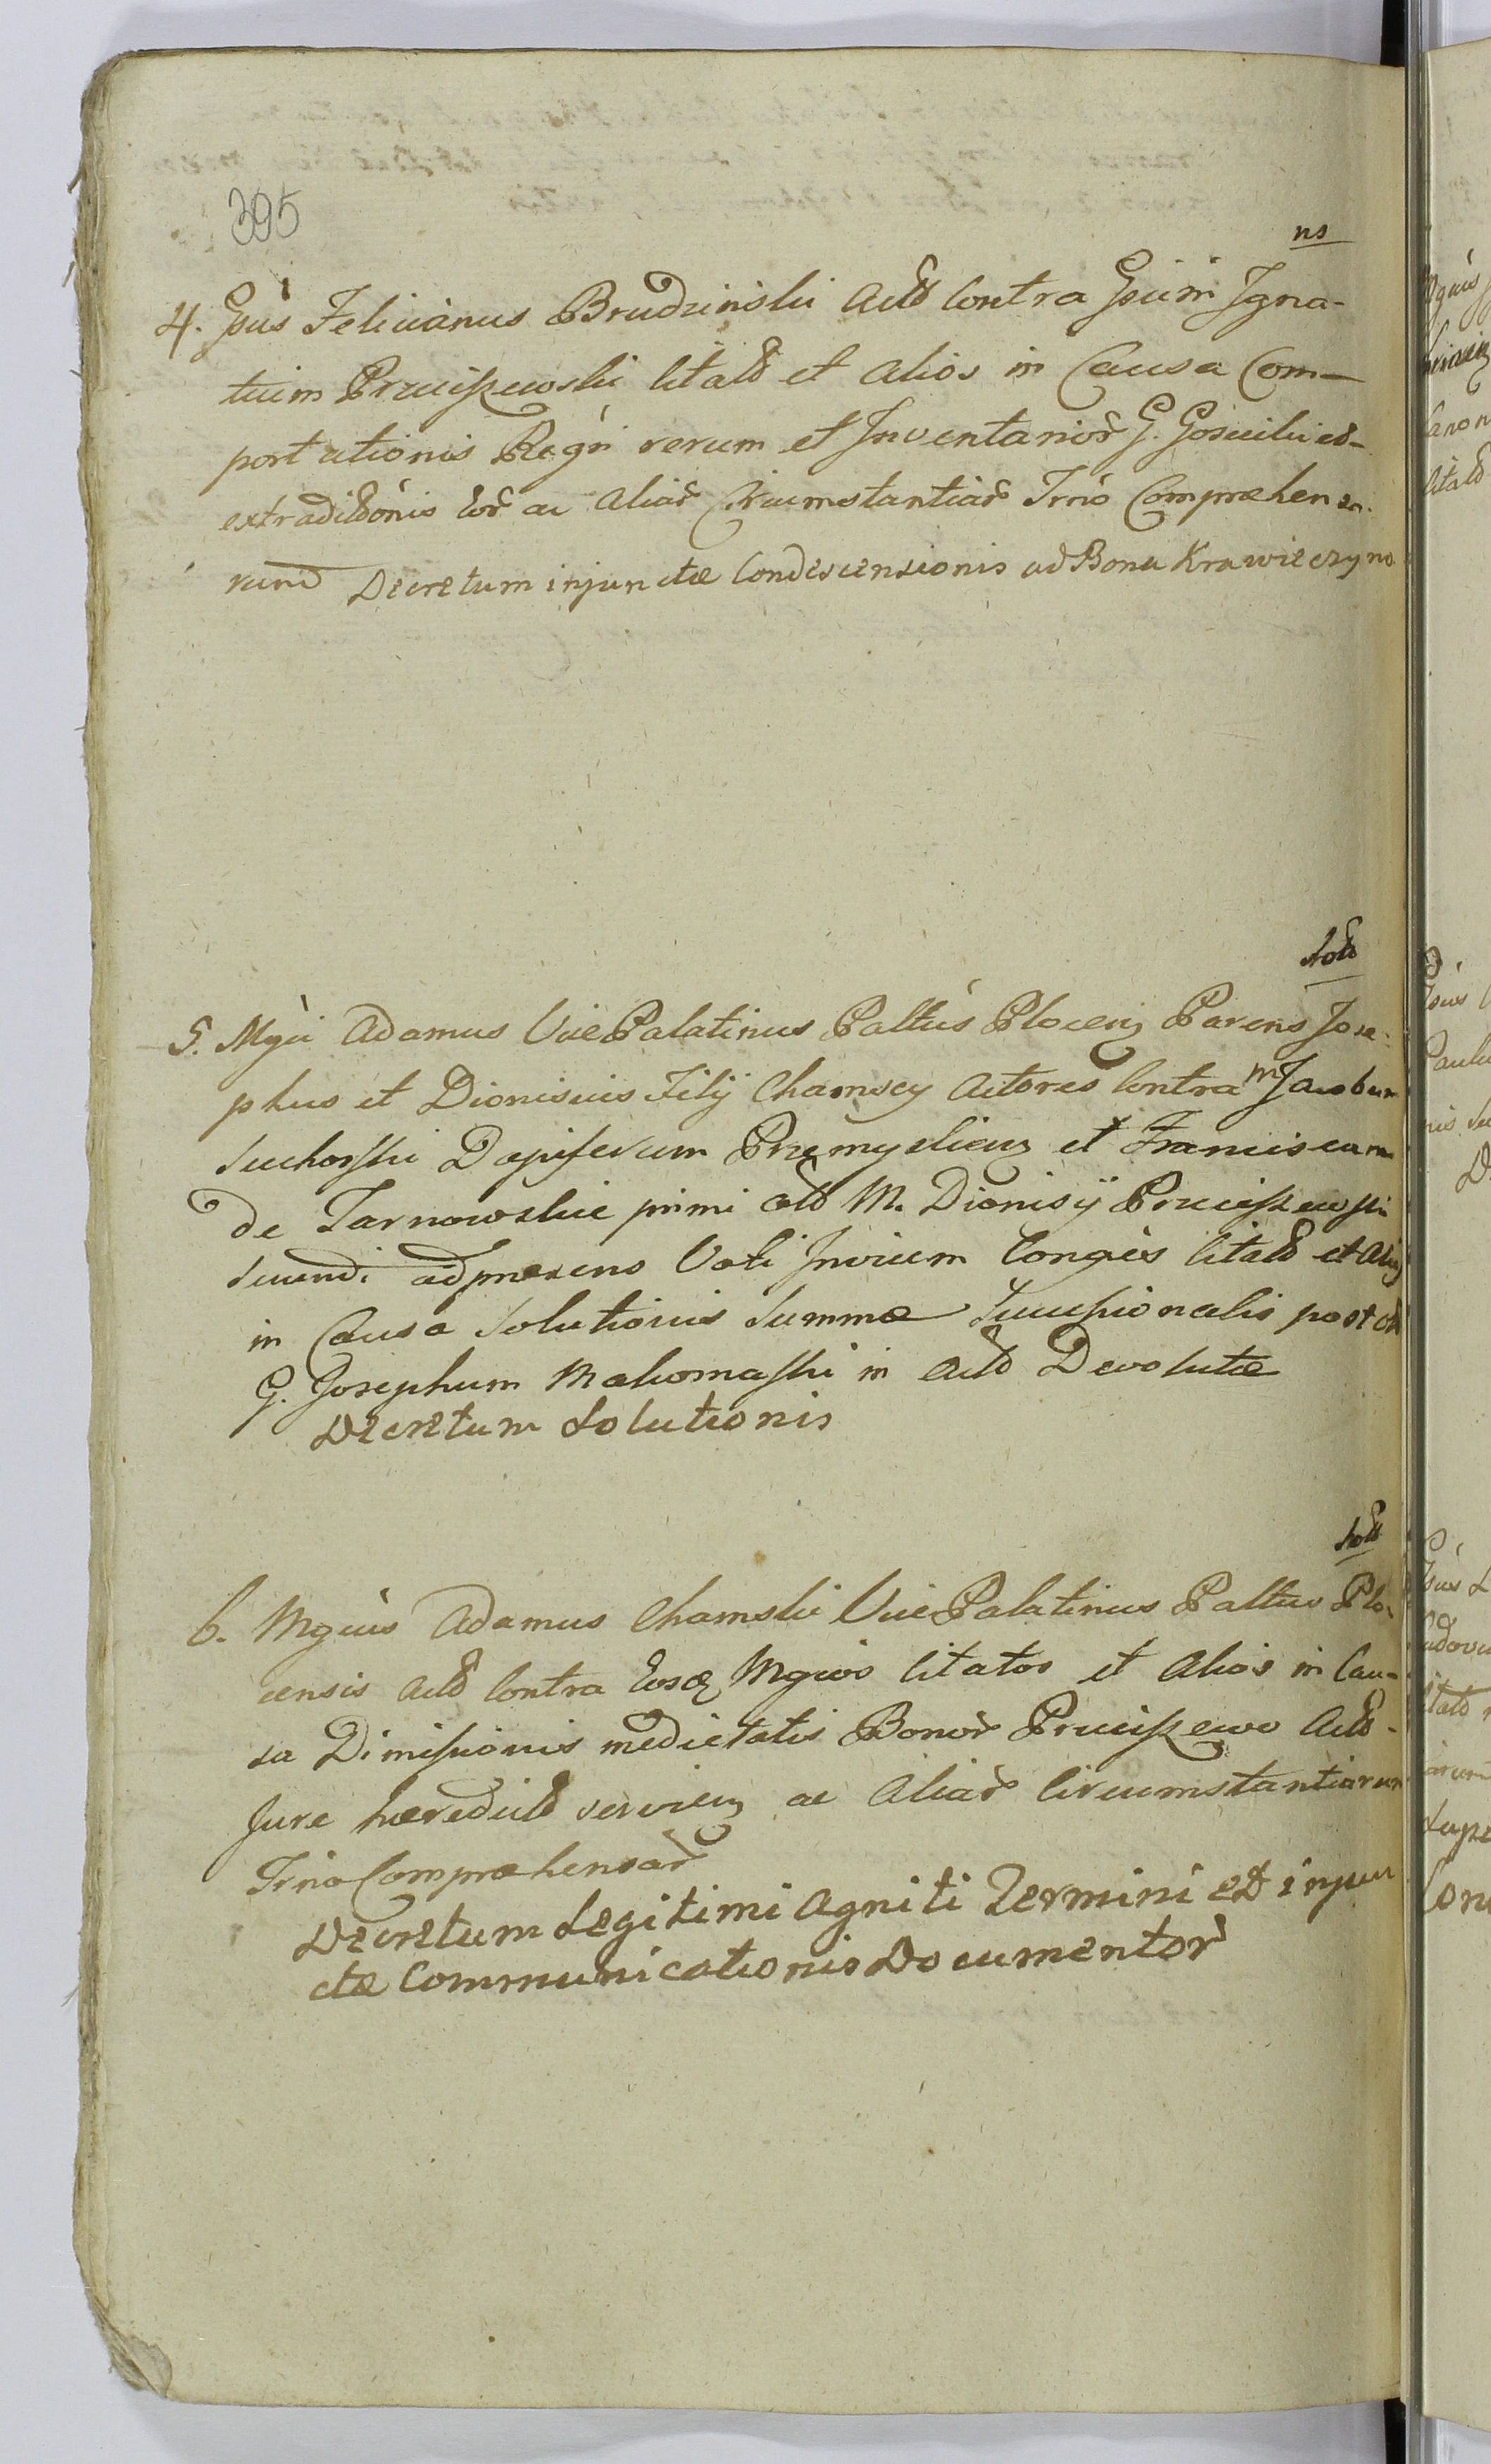 395
ns
4. Gsus Felicianus Brudzinski Actd Contra Gsum Igna-
tium Pruiszewski Citatd et Alios in Causa Com-
portationis Regri rerum et Inventarior G. Gosciciki ed-
extraditionis Eor ac Aliar Circumstantiar Trno Comprehensa-
rum Decretum injunctæ Condescensionis ad Bona Krawieczyno
Sotd
5. Mgci Adamus Vice Palatinus Palttus Plocens Parens Jose-
phus et Dionisius Filij Chamscy Actores Contra M Jacobum
Suchorski Dapiferum Przemysliens et Franciscam
de Tarnowskie primi otd M. Dionisij Pruiszewski
secundi ad præsens Voti Invicem Conges Citatd et Alios
in Causa Solutionis Summæ Successionalis post
G. Josephum Makomaski in Actd Devolutæ
Decretum Solutionis
Sotd
6. Mgcus Adamus Chamski Vice Palatinus Palttus Plo-
censis Actd Contra Eosq Mgcos Citatos et Alios in Cau-
sa Dimissionis medietatis Bonor Pruiszewo Actd-
Jure hæreditd serviens ac Aliar Circumstantiarum
Trno Comprehensar
Decretum Legitimi Agniti Termini et injun
ctæ Communicationis Documentor